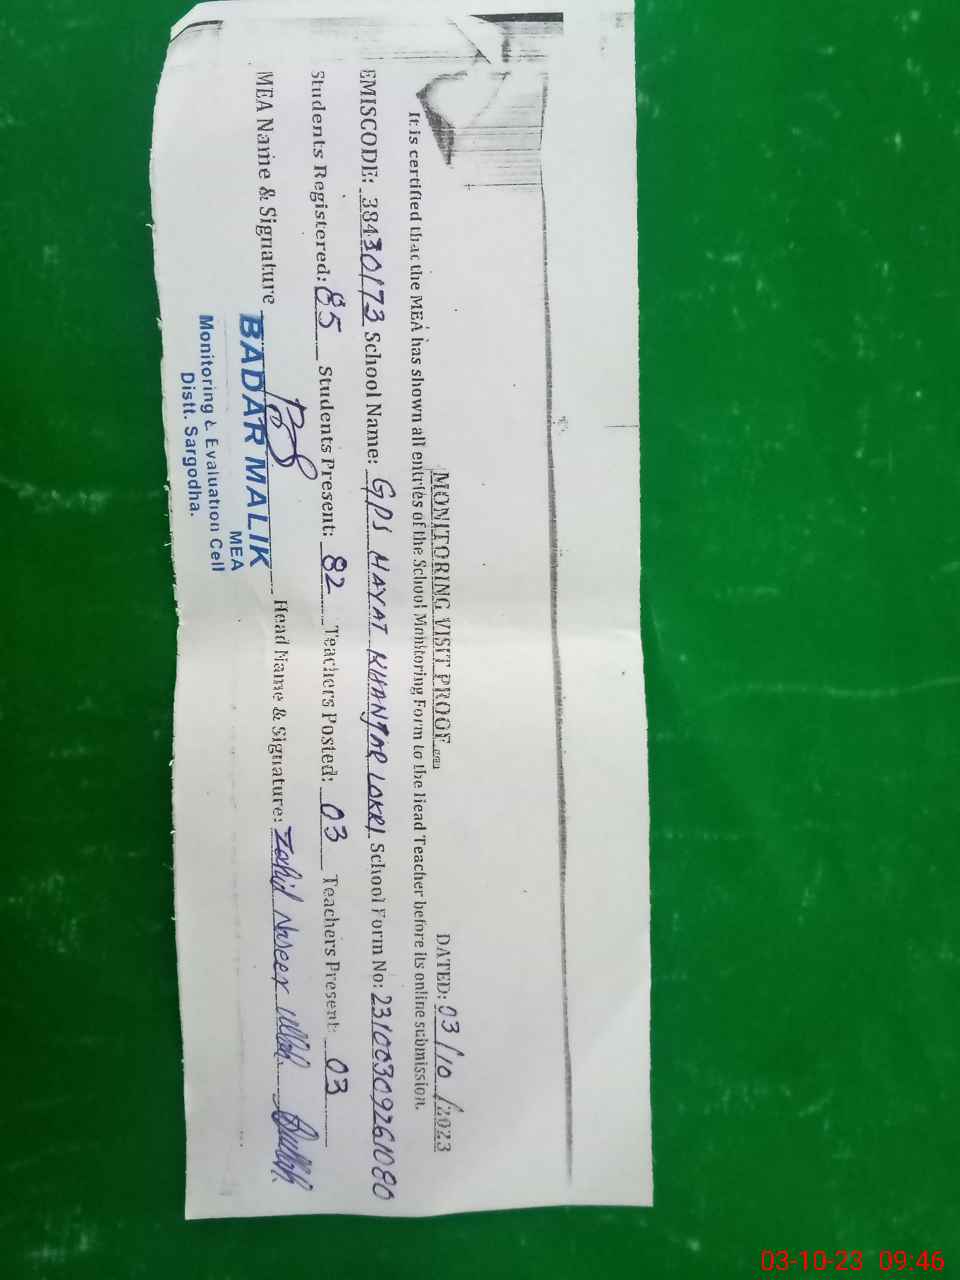 MONITORING VISIT PROOF
DATED: 03/10/2023
It is certified that the MEA has shown all entries of the School Monitoring Form to the Head Teacher before its online submission.
EMISCODE: 38430173 School Name: GPS HAYAT KHANJAR LOKRI School Form No: 23100309261080
Students Registered: 85 Students Present: 82 Teachers Posted: 03 Teachers Present: 03
MEA Name & Signature Head Name & Signature: Zahid Naseer Ullah
BADAR MALIK
MEA
Monitoring & Evaluation Cell
Distt. Sargodha.
03-10-23 09:46